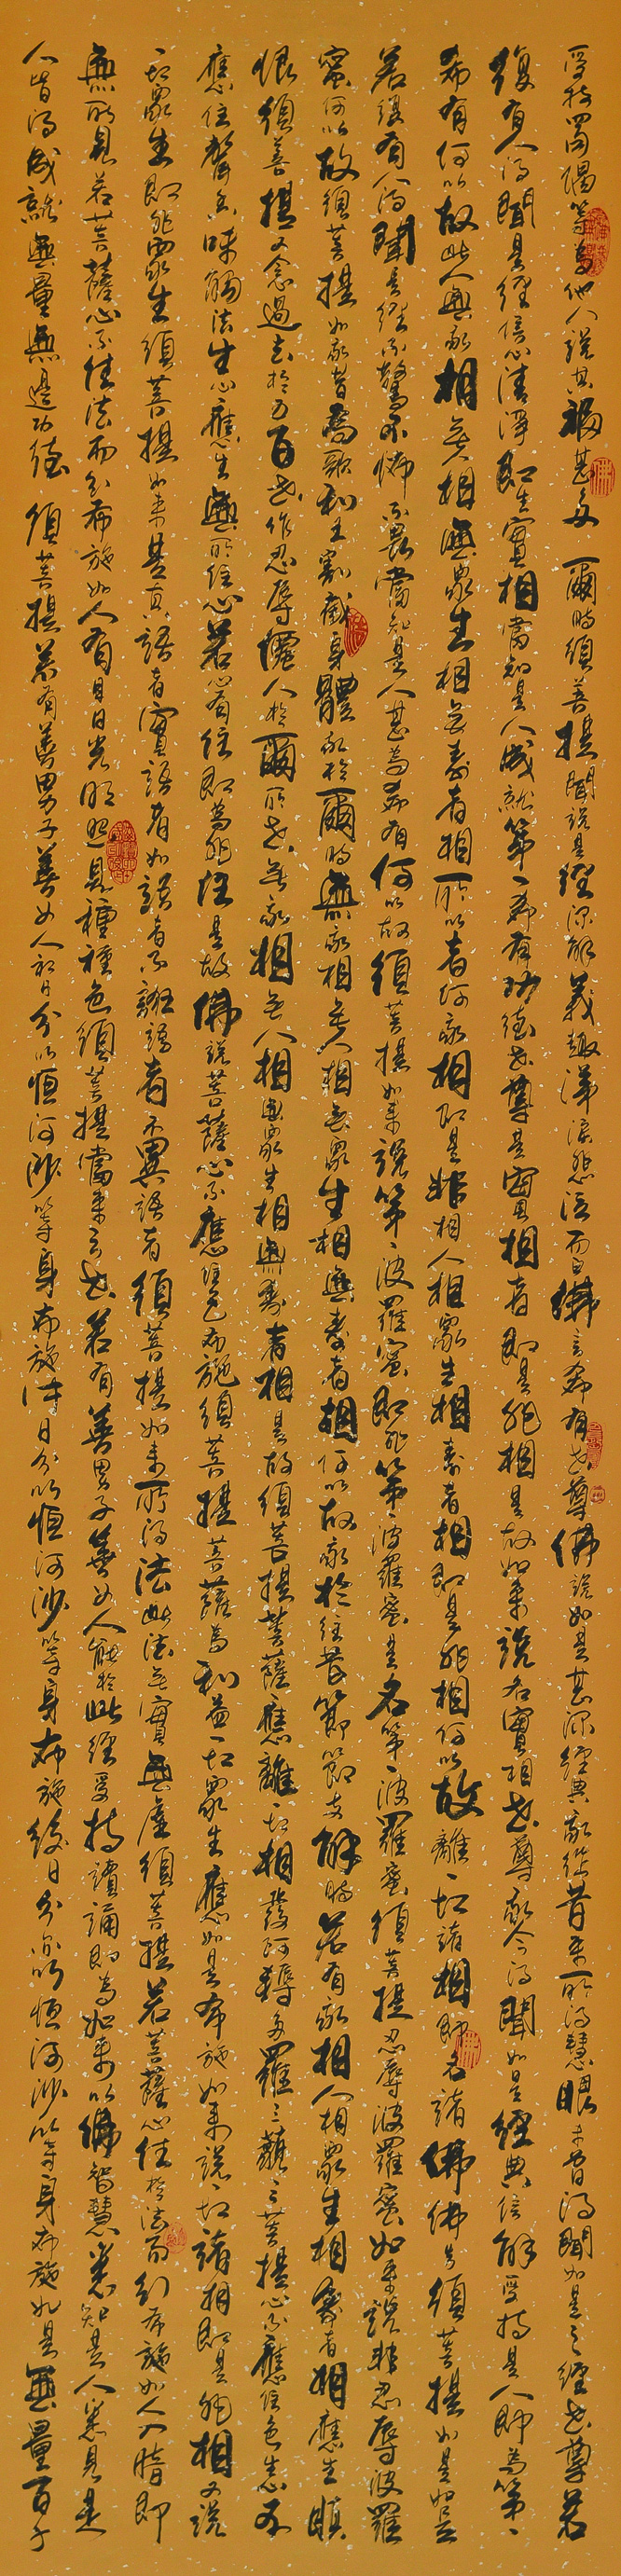 受持四句偈等為他人說其福甚多爾時須菩提聞說是經深解義趣涕淚悲泣而白佛言希有世尊佛說如是甚深經典我從昔來所得慧眼未曾得聞如是之經世尊若
復有人得聞是經信心清淨即生實相當知是人成就第一希有功德世尊是實相者即是非相是故如來說名實相世尊我今得聞如是經典信解受持是人即為第一
希有何以故此人無我相無人相無眾生相無壽者相所以者何我相即是非相人相眾生相壽者相即是非相何以故離一切諸相即名諸佛佛告須菩提如是如是
若復有人得聞是經不驚不怖不畏當知是人甚為希有何以故須菩提如來說第一波羅蜜即非第一波羅蜜是名第一波羅蜜須菩提忍辱波羅蜜如來說非忍辱波羅
蜜何以故須菩提如我昔為歌利王割截身體我於爾時無我相無人相無眾生相無壽者相何以故我於往昔節節支解時若有我相人相眾生相壽者相應生瞋
恨須菩提又念過去於五百世作忍辱僊人於爾所世無我相無人相無眾生相無壽者相是故須菩提菩薩應離一切相發阿耨多羅三藐三菩提心不應住色生心不
應住聲香味觸法生心應生無所住心若心有住即為非住是故佛說菩薩心不應住色布施須菩提菩薩為利益一切眾生應如是布施如來說一切諸相即是非相又說
一切眾生即非眾生須菩提如來是真語者實語者如語者不誑語者不異語者須菩提如來所得法此法無實無虛須菩提若菩薩心住於法而行布施如人入暗即
無所見若菩薩心不住法而行布施如人有目日光明照見種種色須菩提當來之世若有善男子善女人能於此經受持讀誦即為如來以佛智慧悉知是人悉見是
人皆得成就無量無邊功德 須菩提若有善男子善女人初日分以恒河沙等身布施中日分以恒河沙等身布施後日分亦以恒河沙等身布施如是無量百千